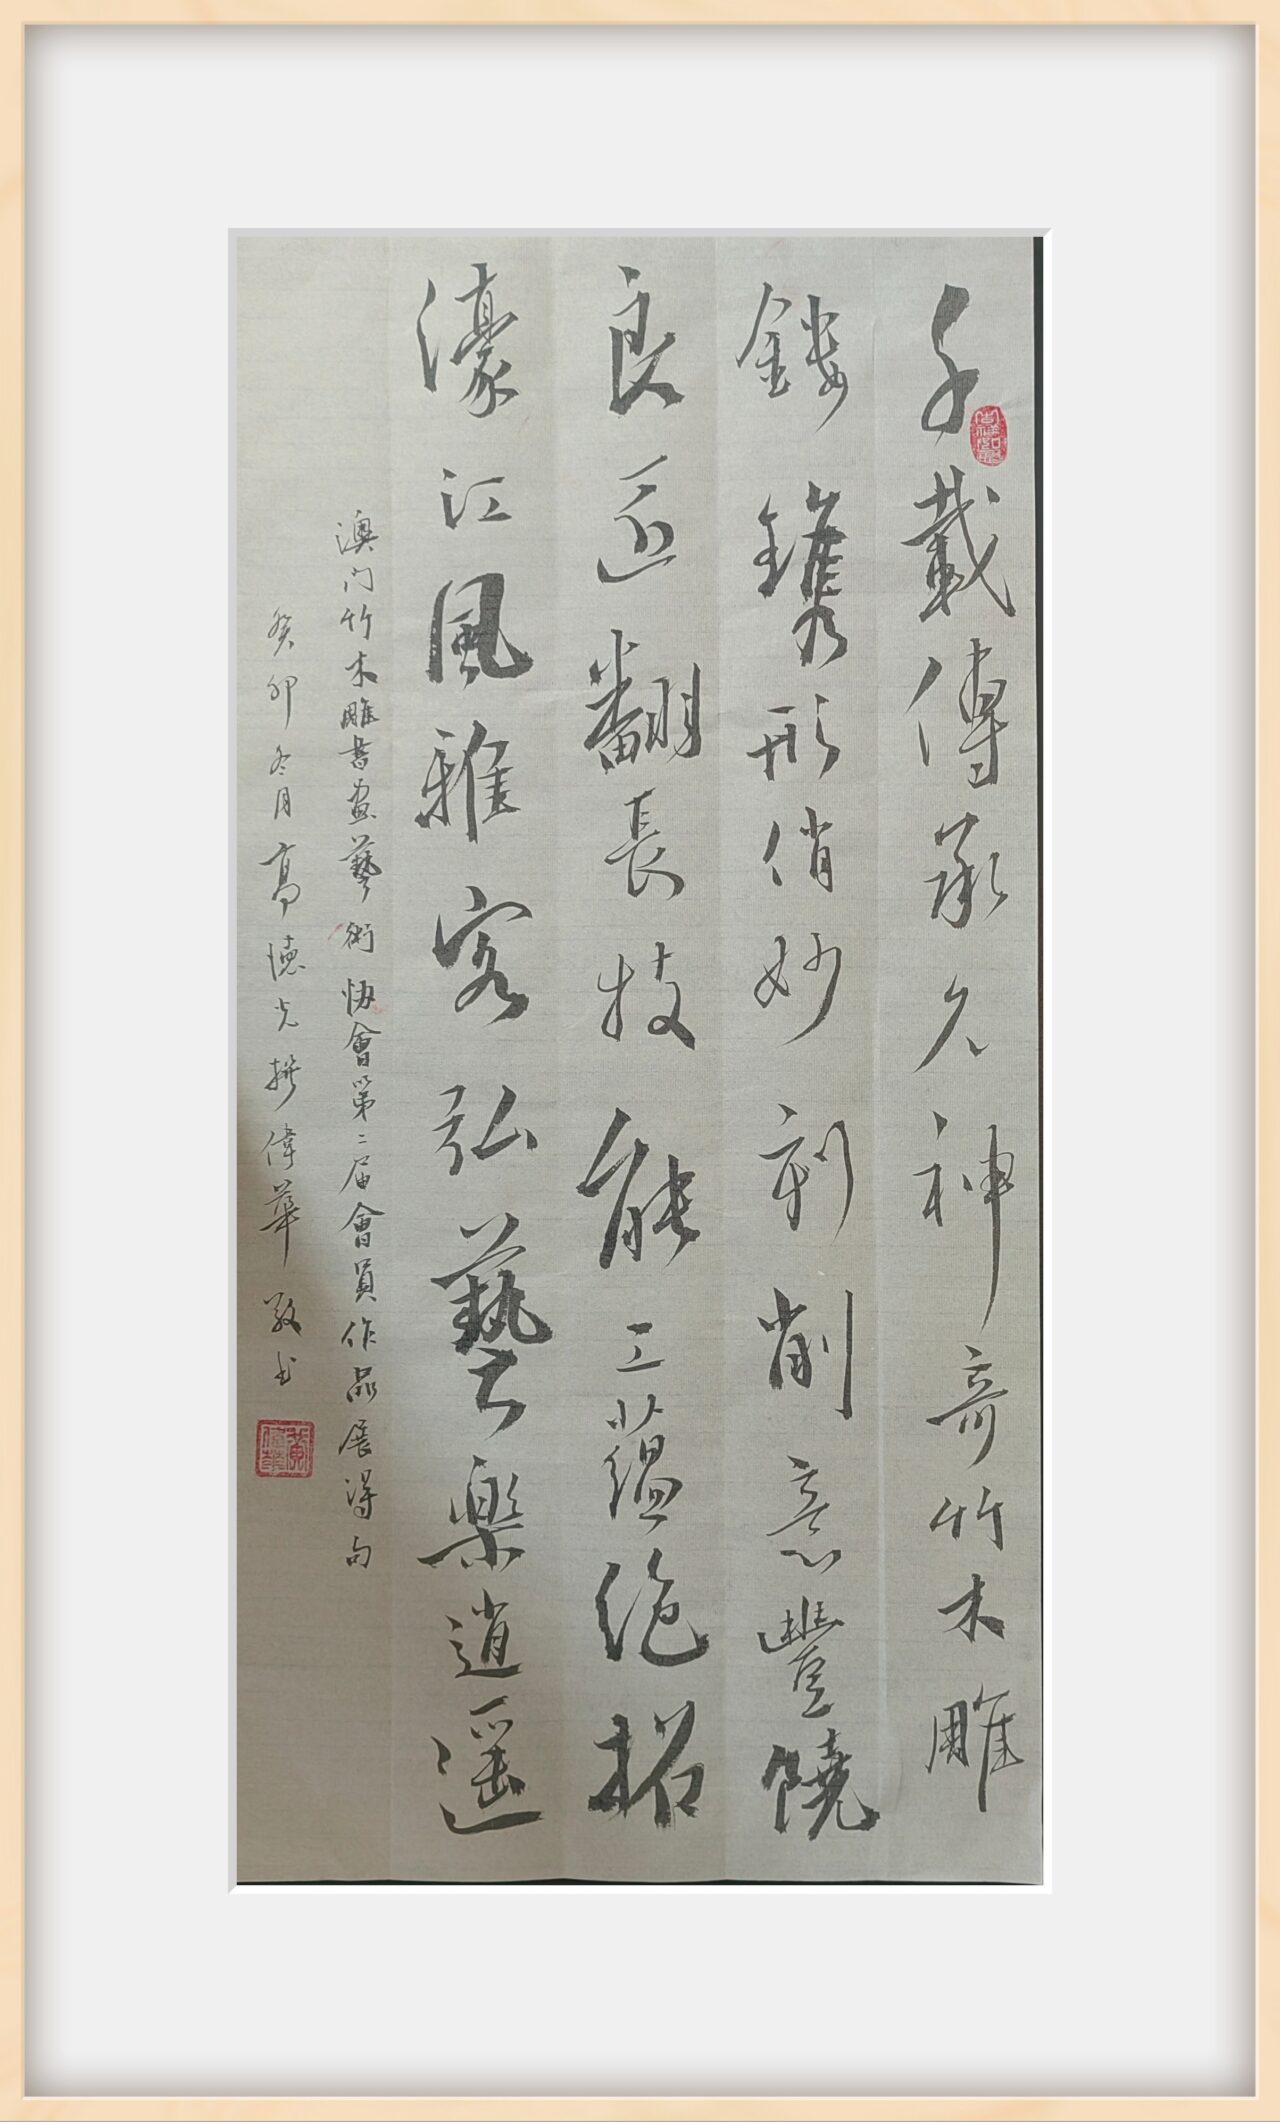 千載傳承久神奇竹木雕
鏤鐫形俏妙刻削意豐饒
良匠翻長技能工蘊絕招
濠江風雅客弘藝樂逍遥
澳门竹木雕書畫藝術協會第二届會員作品展得句
癸卯冬月高德光撰偉華敬书